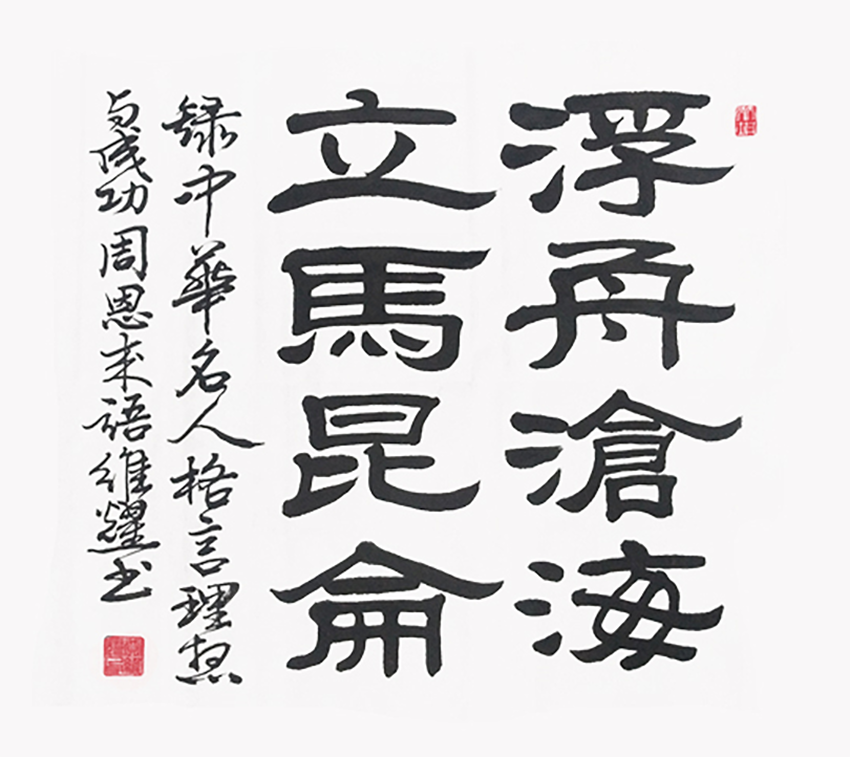 浮舟滄海
立馬昆侖
録中華名人格言理想
与成功周恩来語維耀书